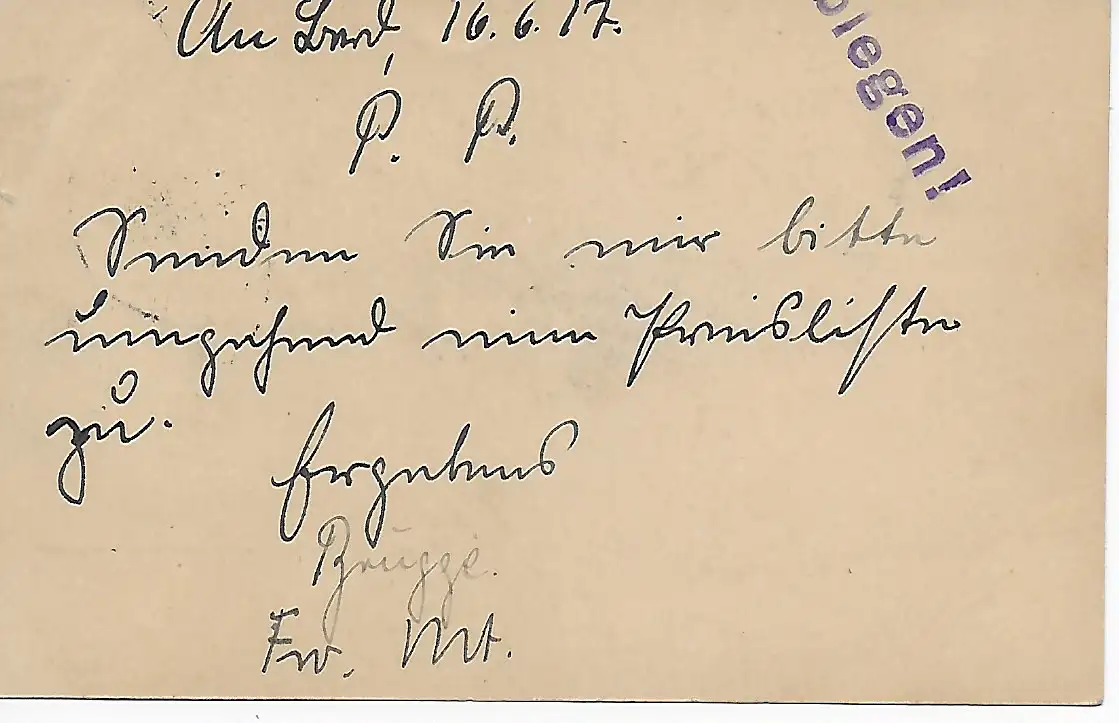 An Bord, 16.6.17.
plegen!
P. P.
Senden Sie mir bitte
umgehend eine Preisliste
zu.
Ergebenst
Brügge.
Fw. Mt.